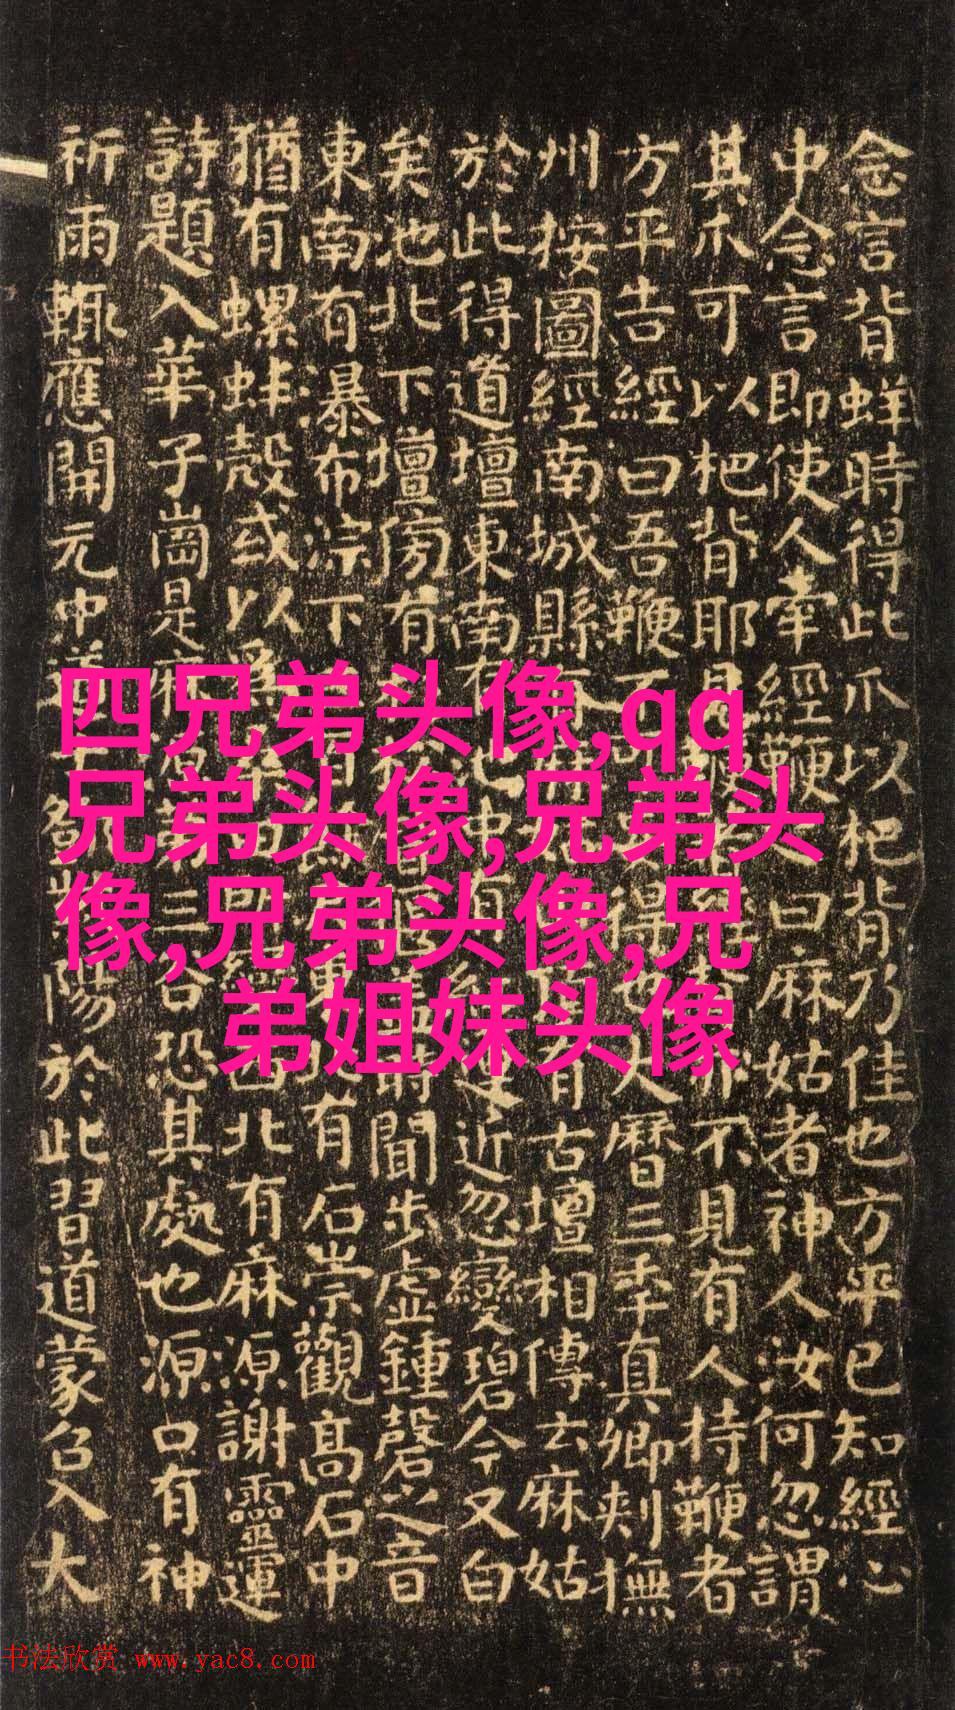 念言背蛘時得此爪以杷背乃佳也方平已知經心
中念言即使人牽經鞭曰麻姑者神人汝何忽謂
其爪可以杷背耶見不見有人持鞭者
方平告經曰吾鞭不得大曆三年真卿刾撫
州按圖經南城縣有有古壇相傳云麻姑
於此得道壇東南有池中有蓮近忽變碧今又白
矣池北下壇傍有時聞步虛鍾磬之音
東南有瀑布淙下有石崇觀高石中
猶有螺蚌殼或以為西北有麻源謝靈運
詩題入華子崗是麻源第三谷恐其處也源口有神
祈雨輒應開元中道士鄧紫陽於此習道蒙召入大
四兄弟头像,qq
兄弟头像,兄弟头
像,兄弟头像,兄
弟姐妹头像
书法欣赏 www.yac8.com